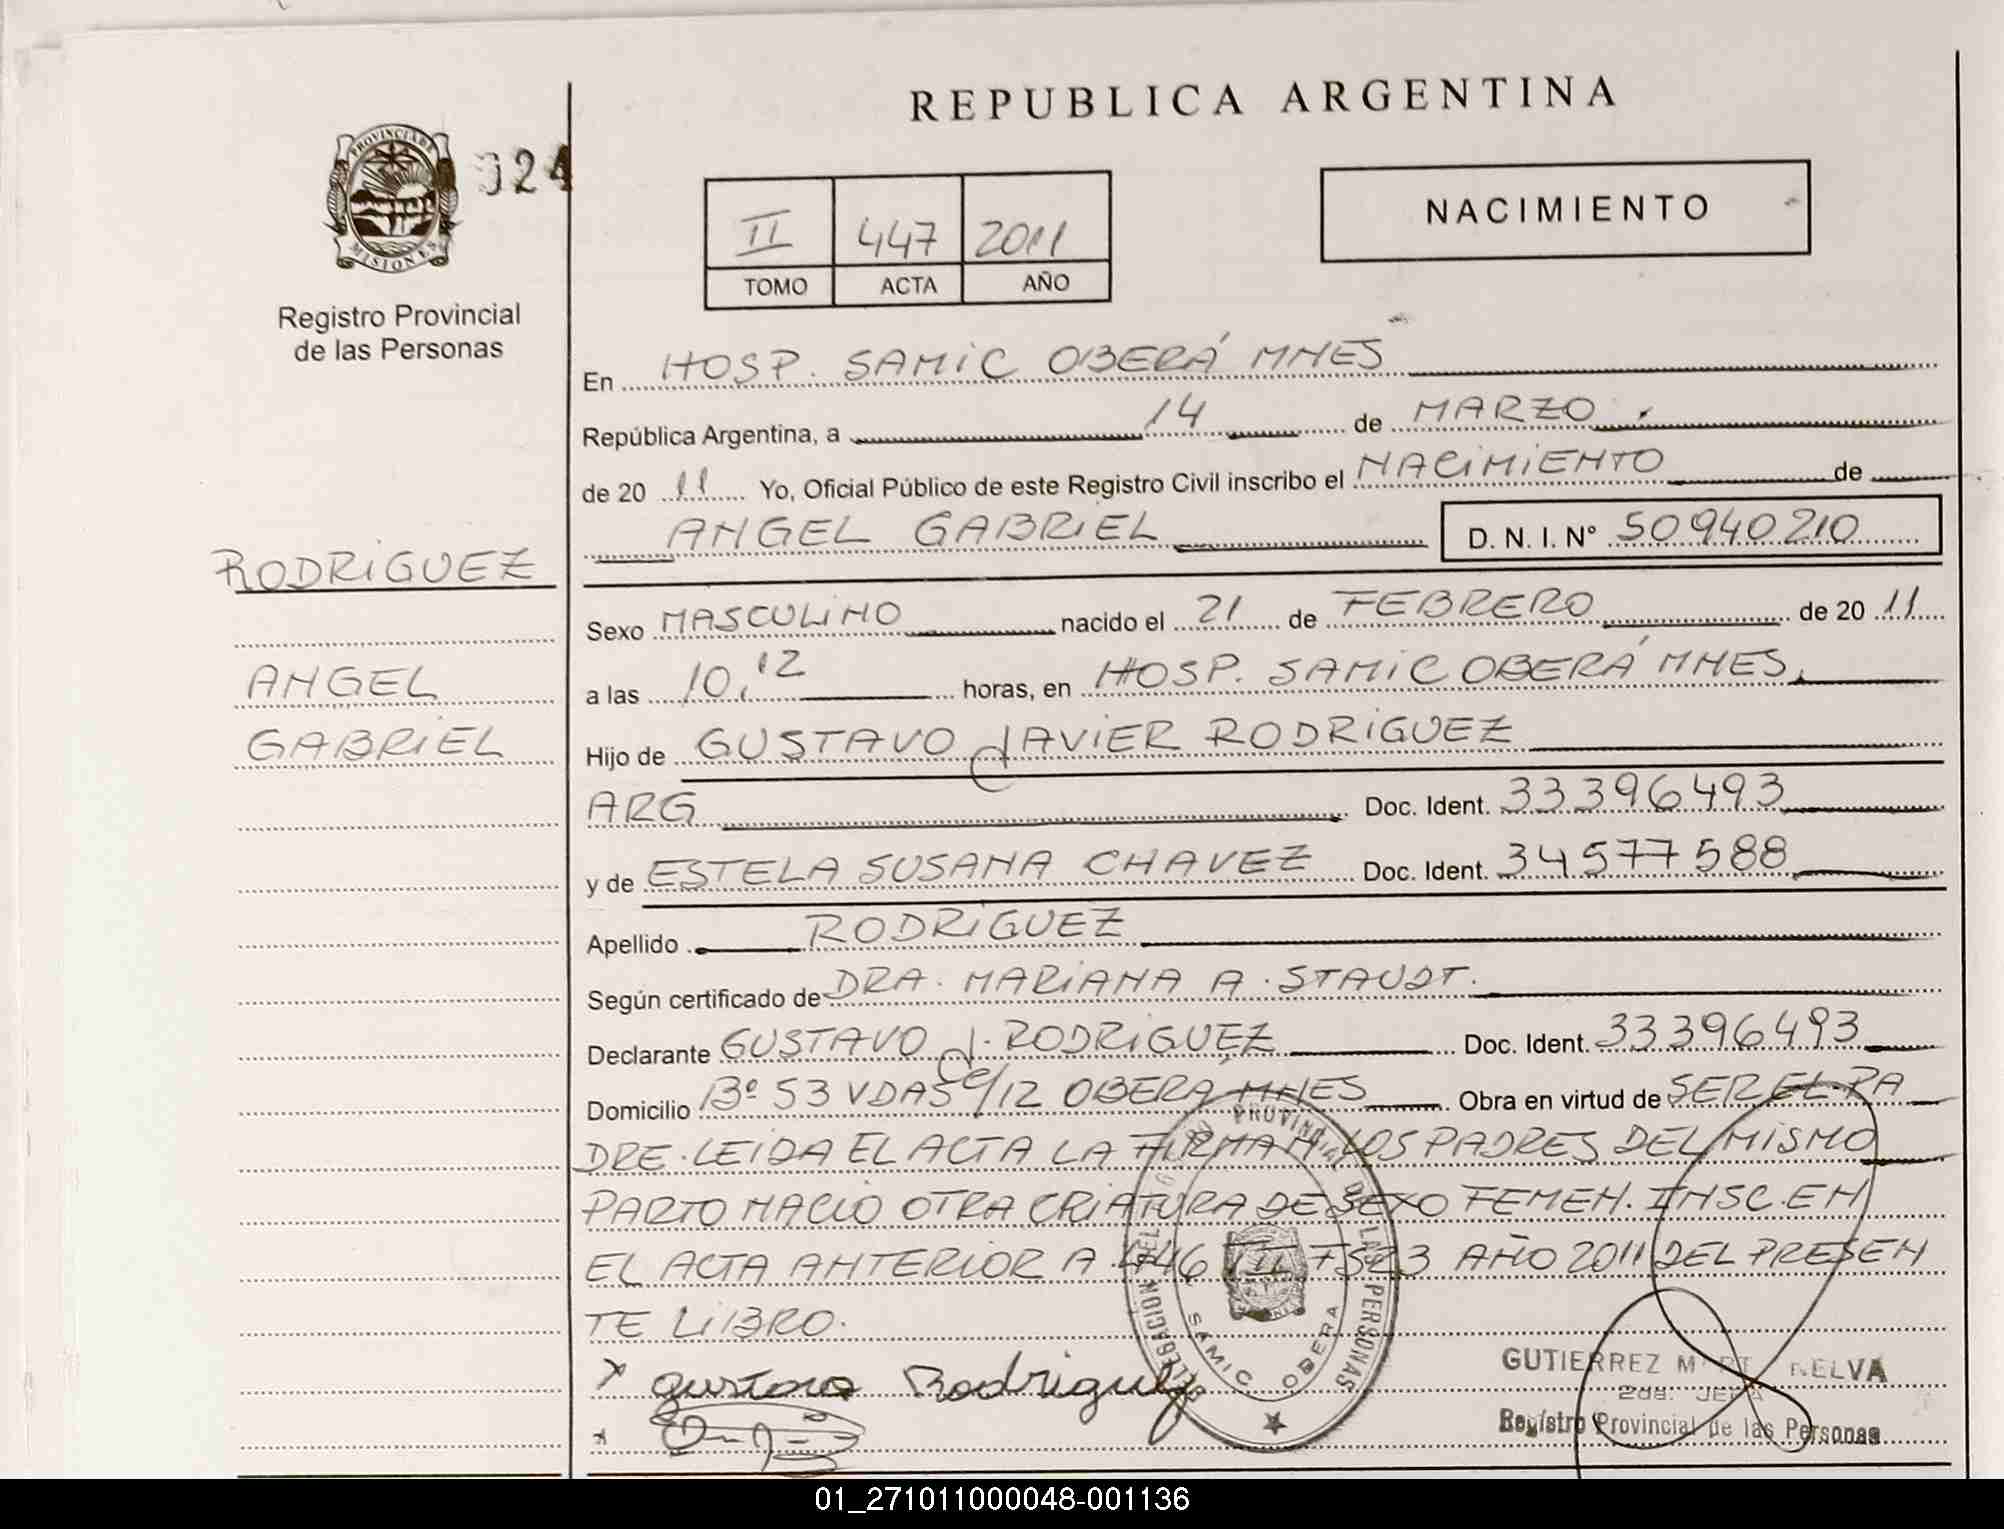 REPUBLICA ARGENTINA
PROVINCIA DE MISIONES
324
Registro Provincial
de las Personas
II 447 2011
TOMO ACTA AÑO
NACIMIENTO
En HOSP. SAMIC OBERÁ MNES
República Argentina, a 14 de MARZO
de 20 11 Yo, Oficial Público de este Registro Civil inscribo el NACIMIENTO de
ANGEL GABRIEL D. N. I. N° 50940210
RODRIGUEZ
ANGEL
GABRIEL
Sexo MASCULINO nacido el 21 de FEBRERO de 20 11
a las 10,12 horas, en HOSP. SAMIC OBERÁ MNES,
Hijo de GUSTAVO JAVIER RODRIGUEZ
ARG Doc. Ident. 33396493
y de ESTELA SUSANA CHAVEZ Doc. Ident. 34577588
Apellido RODRIGUEZ
Según certificado de DRA. MARIANA A. STAUDT.
Declarante GUSTAVO J. RODRIGUEZ Doc. Ident. 33396493
Domicilio Bº 53 VDAS C/12 OBERÁ MNES Obra en virtud de SER EL PA
DRE. LEIDA EL ACTA LA FIRMAN LOS PADRES DEL MISMO
PARTO NACIO OTRA CRIATURA DE SEXO FEMEN. INSC. EN
EL ACTA ANTERIOR A 446 TII FS23 AÑO 2011 DEL PRESEN
TE LIBRO.
x Gustavo Rodriguez
x
DELEGACION DEL PROVINCIAL DE LAS PERSONAS
SAMIC OBERA
GUTIERREZ NELVA
2da. JEFA
Registro Provincial de las Personas
01_271011000048-001136